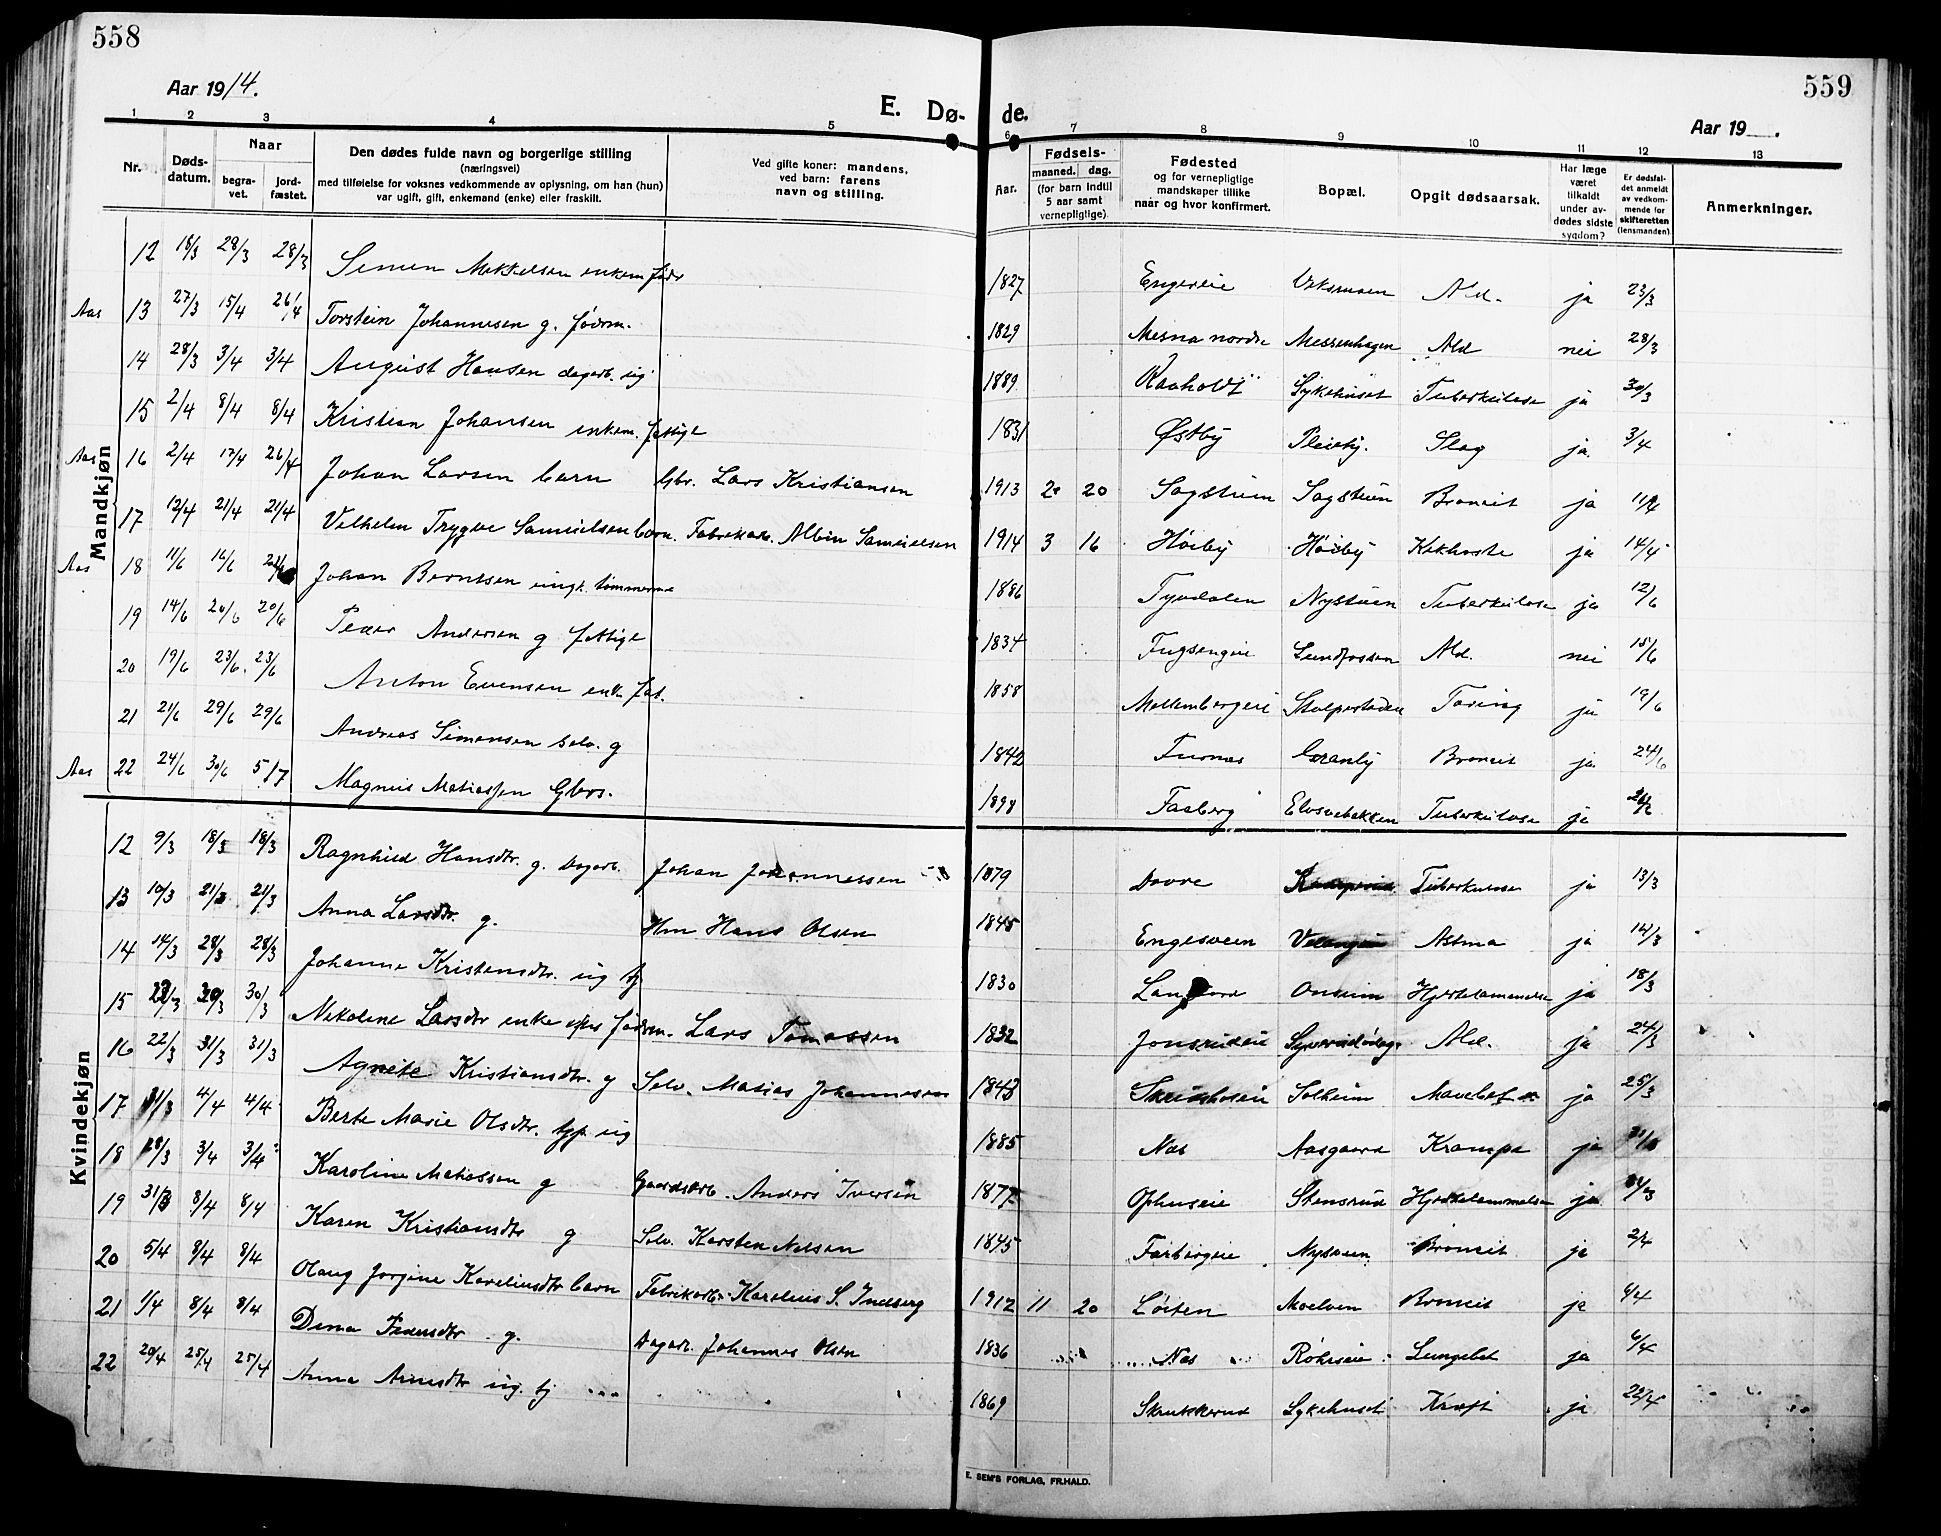 558
559
Aar 1914.
E. Dø-
de.
Aar 19 .
1 2 3 4 5 6 7 8 9 10 11 12 13
Nr. Døds-datum. Naar begra-vet. jord-fæstet. Den dødes fulde navn og borgerlige stilling (næringsvei) med tilføielse for voksnes vedkommende av oplysning, om han (hun) var ugift, gift, enkemand (enke) eller fraskilt. Ved gifte koner: mandens, ved barn: farens navn og stilling. Aar. Fødsels- maaned. dag. (for barn indtil 5 aar samt vernepligtige). Fødested og for vernepligtige mandskaper tillike naar og hvor konfirmert. Bopæl. Opgit dødsaarsak. Har læge været tilkaldt under av-dødes sidste sygdom? Er dødsfal-det anmeldt av vedkom-mende for skifteretten (lensmanden) Anmerkninger.
Mandkjøn
12 18/3 28/3 28/3 Simen Mikkelsen enkem. 1827 Engereie Ald. ja 23/3
Aas 13 27/3 15/4 26/4 Torstein Johannesen g. fødrm. 1829 Mesna nordre Messenhagen Ald nei 28/3
14 28/3 3/4 3/4 August Hansen dagarb. ug 1889 Raaholdt Sykehuset Tuberkulose ja 30/3
15 2/4 8/4 8/4 Kristian Johansen enkem. fattigl 1831 Østby Pleiehj. Slag ja 3/4
Aas 16 2/4 17/4 26/4 Johan Larsen barn Gbr. Lars Kristiansen 1913 2 20 Sagstuen Sagstuen Broncit ja 11/4
17 12/4 21/4 21/4 Vilhelm Trygve Samuelsen barn. Fabrikarb. Albin Samuelsen 1914 3 16 Høiby Høiby Kikhoste ja 14/4
Aas 18 11/6 16/6 Johan Berntsen ungk. tømmerm 1886 Tyvdalen Nystuen Tuberkulose ja 12/6
19 14/6 20/6 20/6 Peder Andersen g fattigl 1834 Fugsengeie Lundfossen Ald. nei 15/6
20 19/6 23/6 23/6 Anton Evensen enk. fat. 1858 Mellembergeie Stolpestaden Tæring ja 19/6
21 21/6 29/6 29/6 Andreas Simensen selv. g 1842 Furnes Granly Broncit ja 24/6
Aas 22 24/6 30/6 5/7 Magnus Matiassen Gbrs. 1898 Faaberg Elvsvebakken Tuberkulose ja
Kvindekjøn
12 9/3 18/3 18/3 Ragnhild Hansdtr. g. Dagarb. Johan Johannessen 1879 Dovre Tuberkulose ja 13/3
13 10/3 21/3 21/3 Anna Larsdtr. g. Hm Hans Olsen 1845 Engesveen Astma ja 14/3
14 14/3 28/3 28/3 Johanne Kristensdtr. ug tj 1830 Onsum Hjertelammelse ja 18/3
15 30/3 30/3 Nikoline Larsdtr enke efter fødrm. Lars Tomassen 1832 Jonsrudeie Ald. ja 24/3
16 22/3 31/3 31/3 Agnete Kristiansdtr. g Selv. Matias Johannessen 1843 Solheim Mavekræft ja 25/3
17 31/3 4/4 4/4 Berte Marie Olsdtr. tjp. ug 1885 Næs Aasgaard Krampe ja
18 28/3 3/4 3/4 Karoline Matiassen g Gaardsarb. Anders Iversen 1877 Ophuseie Stensrud Hjertelammelse ja
19 31/3 8/4 8/4 Karen Kristiansdtr g Selv. Karsten Nilsen 1845 Faabergeie Nysveen Broncit ja 2/4
20 5/4 8/4 8/4 Olaug Jørgine Kareliusdtr barn Fabrikarb. Karelius S. Indberg 1912 11 20 Løiten Moelven Broncit ja 6/4
21 1/4 8/4 8/4 Dina Pedersdtr. g. Dagarb. Johannes Olsen 1836 Næs Røhrseie Lungebet ja 6/4
22 20/4 25/4 25/4 Anna Arnesdtr ug. tj 1869 Skrukkerud Sykehuset Kræft ja 22/4
E. SEM'S FORLAG, FR.HALD.